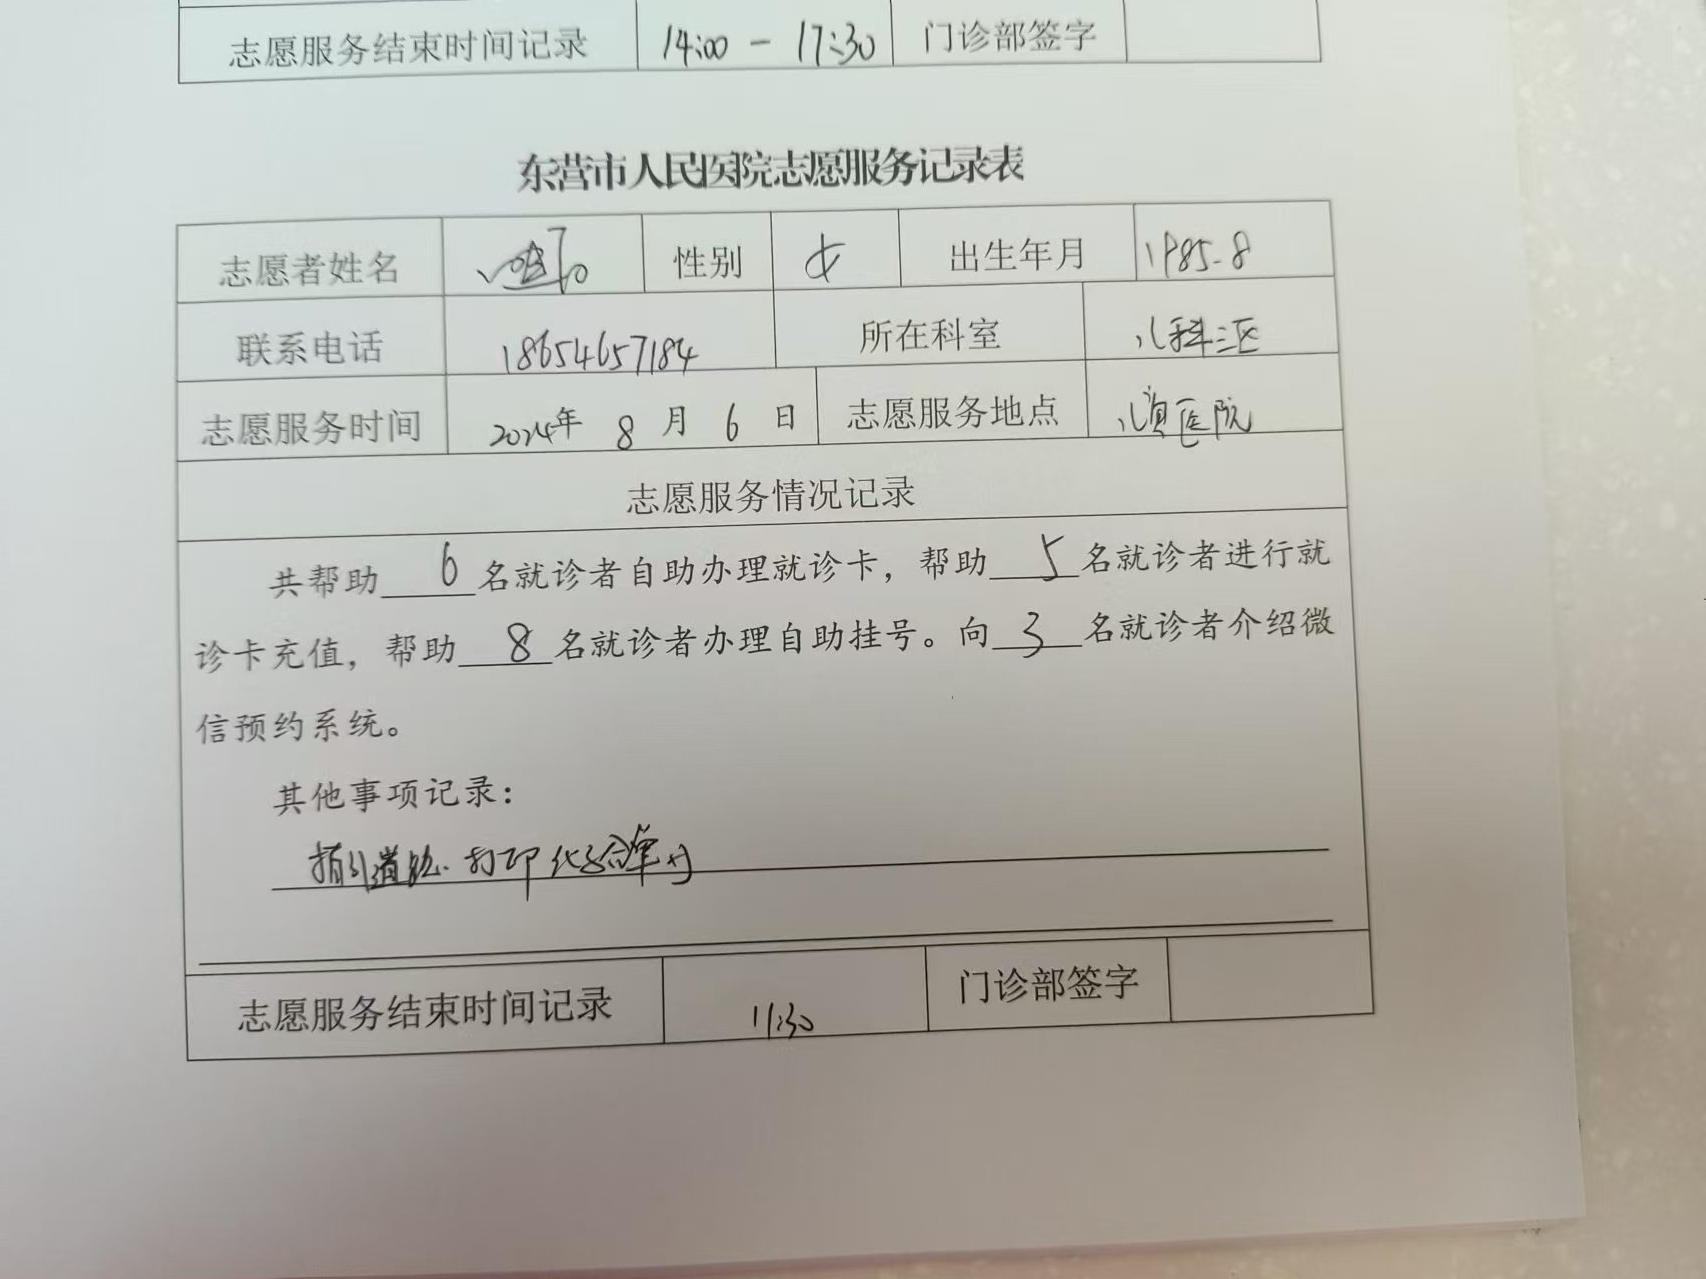 志愿服务结束时间记录 14:00 - 17:30 门诊部签字
东营市人民医院志愿服务记录表
志愿者姓名 性别 女 出生年月 1985.8
联系电话 18654657184 所在科室 儿科三区
志愿服务时间 2024年 8 月 6 日 志愿服务地点 儿童医院
志愿服务情况记录
共帮助 6 名就诊者自助办理就诊卡，帮助 5 名就诊者进行就
诊卡充值，帮助 8 名就诊者办理自助挂号。向 3 名就诊者介绍微
信预约系统。
其他事项记录：
指引道路. 打印化验单
志愿服务结束时间记录 11:30 门诊部签字